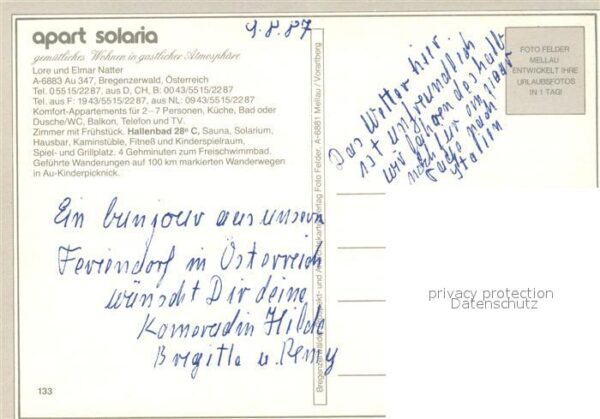 apart solaria
gemütliches Wohnen in gastlicher Atmosphäre
Lore und Elmar Natter
A-6883 Au 347, Bregenzerwald, Österreich
Tel. 05515/2287, aus D, CH, B: 0043/5515/2287
Tel. aus F: 1943/5515/2287, aus NL: 0943/5515/2287
Komfort-Appartements für 2–7 Personen, Küche, Bad oder
Dusche/WC, Balkon, Telefon und TV.
Zimmer mit Frühstück. Hallenbad 28° C, Sauna, Solarium,
Hausbar, Kaminstüble, Fitneß und Kinderspielraum,
Spiel- und Grillplatz. 4 Gehminuten zum Freischwimmbad.
Geführte Wanderungen auf 100 km markierten Wanderwegen
in Au-Kinderpicknick.
9.8.87
Ein bunjour aus unserm
Feriendorf in Österreich
wünscht Dir deine
Kameradin Hilde
Brigitte u. Remy
133
Verlag Foto Felder, A-6881 Mellau / Vorarlberg
Das Wetter hier
ist unfreundlich
wir fahren deshalb
noch für ein paar
Tage nach
Italien
FOTO FELDER
MELLAU
ENTWICKELT IHRE
URLAUBSFOTOS
IN 1 TAG!
privacy protection
Datenschutz